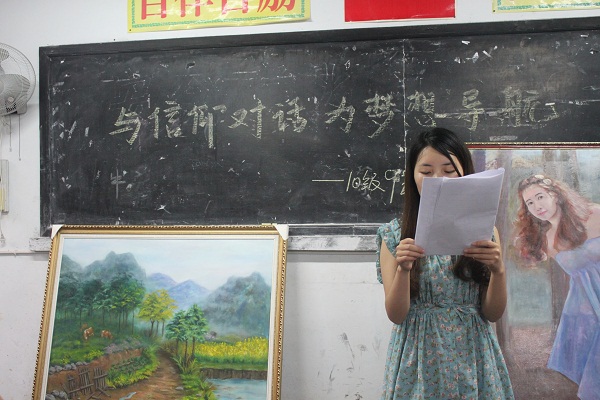 与信仰对话 为梦想导航
——10级